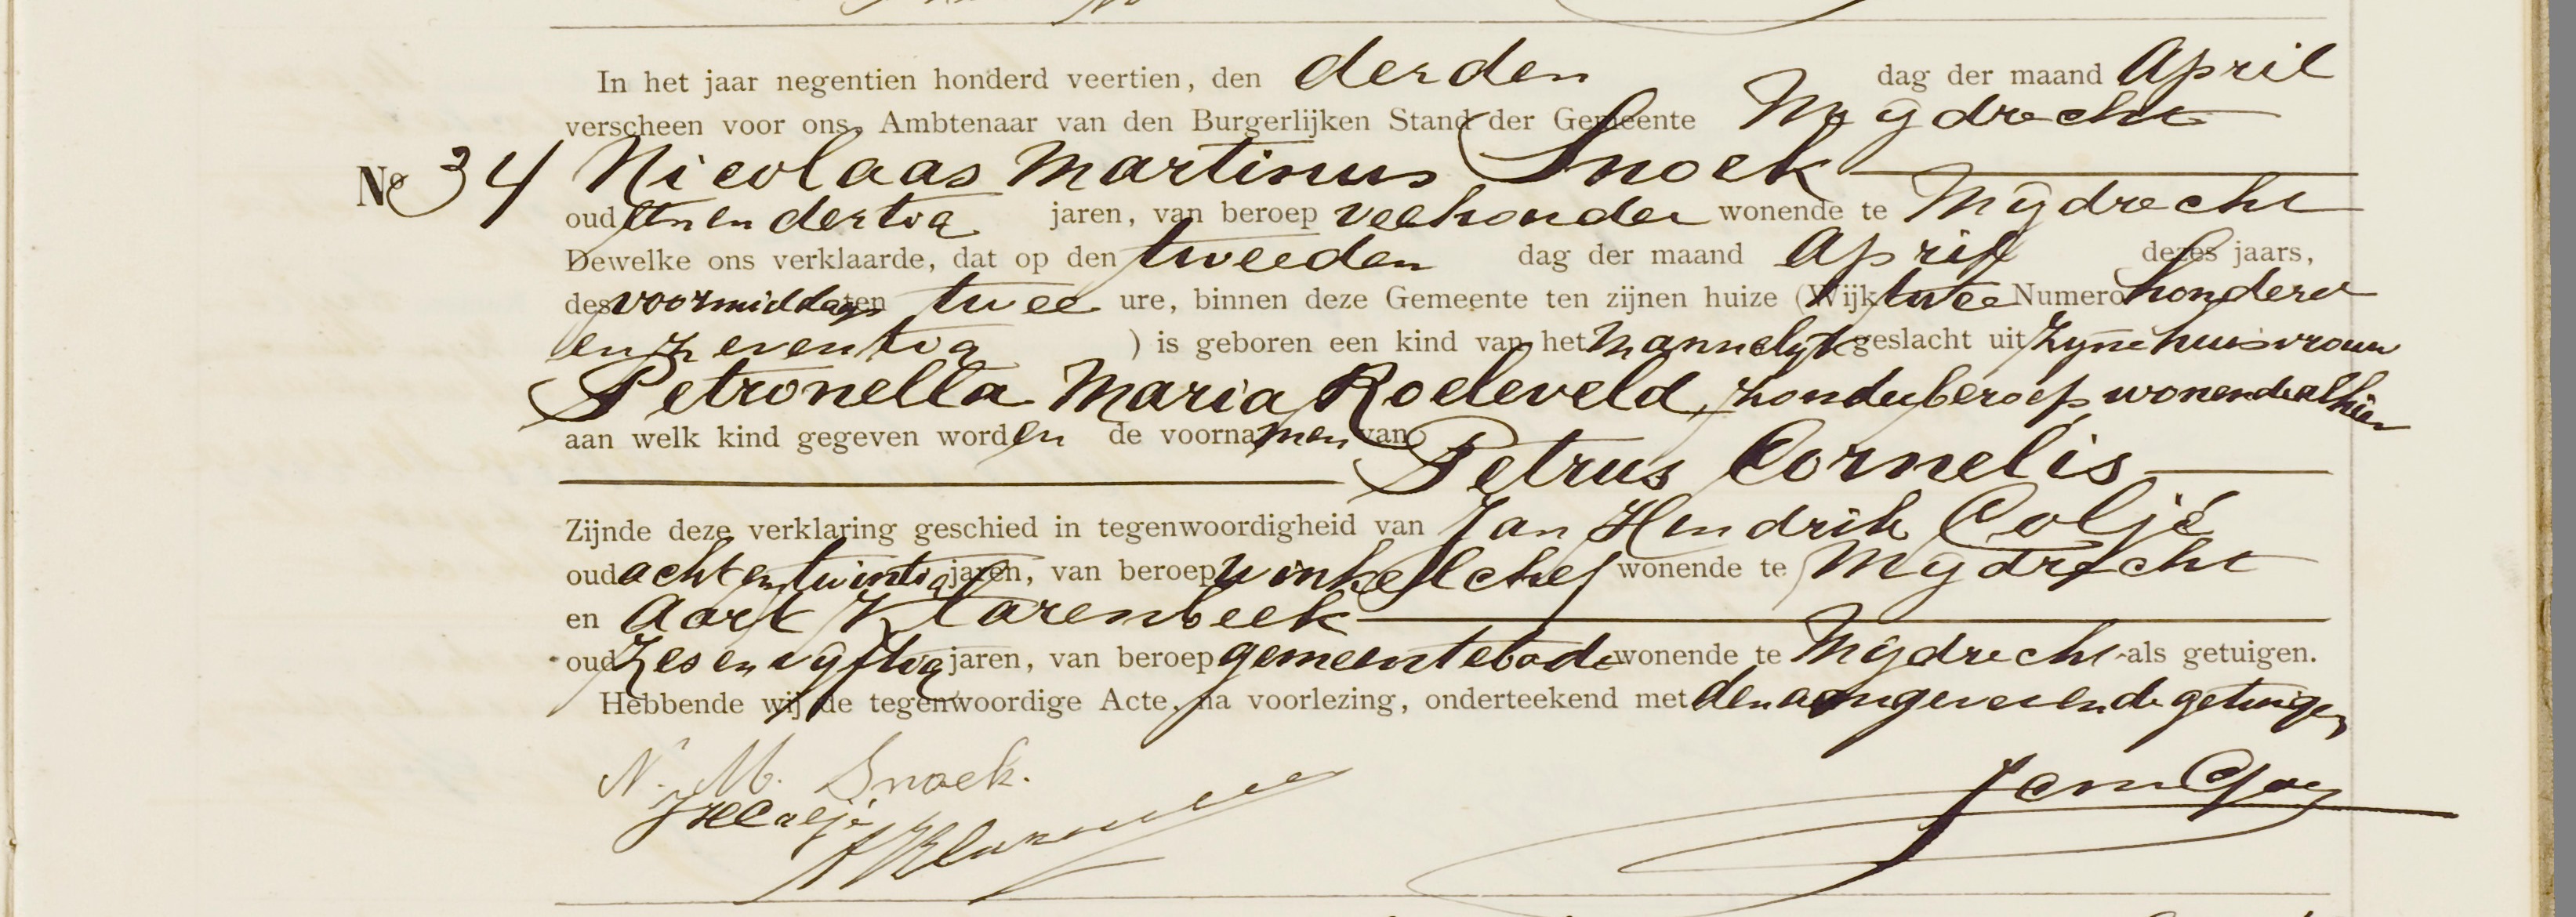 In het jaar negentien honderd veertien, den derden dag der maand April
verscheen voor ons, Ambtenaar van den Burgerlijken Stand der Gemeente Mijdrecht
No 34 Nicolaas Martinus Snoek
oud een en dertig jaren, van beroep veehouder wonende te Mijdrecht
Dewelke ons verklaarde, dat op den tweeden dag der maand April dezes jaars,
des voormiddags ten twee ure, binnen deze Gemeente ten zijnen huize (Wijk twee Numero honderd
en zeventig ) is geboren een kind van het Mannelijk geslacht uit zijne huisvrouw
Petronella Maria Roeleveld, zonder beroep wonende alhier
aan welk kind gegeven worden de voornamen van
Petrus Cornelis
Zijnde deze verklaring geschied in tegenwoordigheid van Jan Hendrik Coljé
oud acht en twintig jaren, van beroep winkelchef wonende te Mijdrecht
en Aart Klarenbeek
oud zes en vijftig jaren, van beroep gemeentebode wonende te Mijdrecht als getuigen.
Hebbende wij de tegenwoordige Acte, na voorlezing, onderteekend met den aangever en de getuigen
N. M. Snoek.
JHColjé